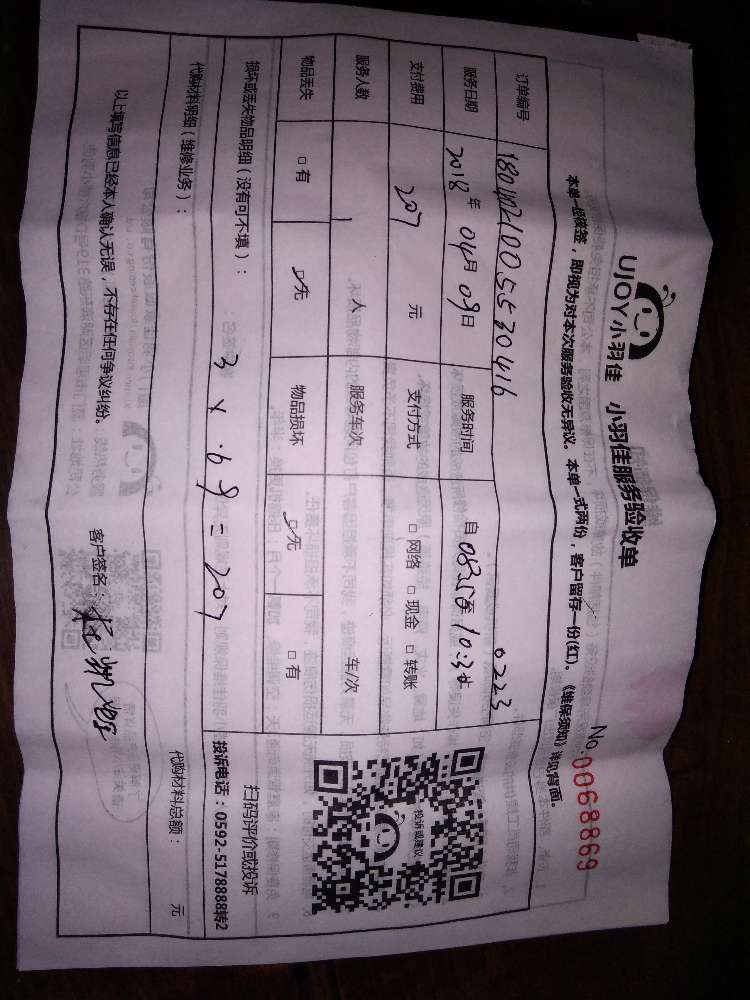 UJOY小羽佳 小羽佳服务验收单
No.0068869
本单一经被签，即视为对本次服务验收无异议。本单一式两份，客户留存一份(红)。《维保须知》详见背面。
订单编号 18040210055530416 0223
服务日期 2018年04月09日 服务时间 自0835至10:35
支付费用 207元 支付方式 □网络 □现金 □转账
服务人数 1人 服务车次 车/次
物品丢失 □有 □无 物品损坏 □无 □有
损坏或丢失物品明细（没有可不填）：
3×69=207
扫码评价或投诉
投诉电话：0592-5178888转2
投诉或建议
代购材料明细（维修业务）：
代购材料总额： 元
以上填写信息已经本人确认无误，不存在任何争议纠纷。
客户签名：